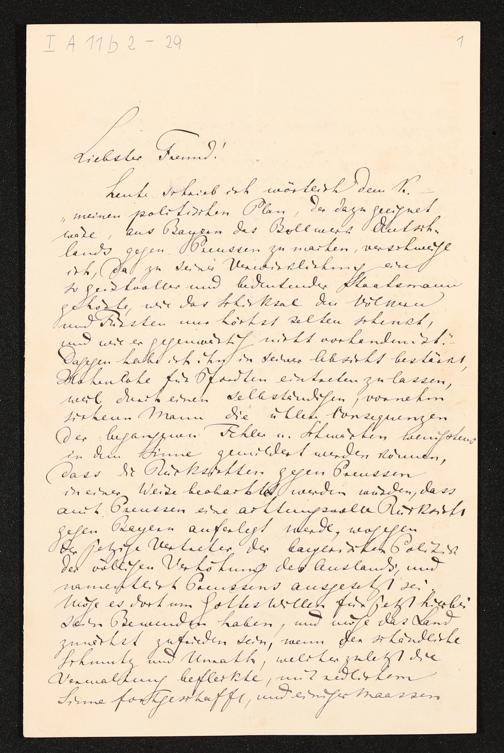 I A 11b 2 - 29
1
Liebster Freund!
Heute schrieb ich wörtlich dem K. –
„meinen politischen Plan, der dazu geeignet
wäre, aus Bayern das Bollwerk Deutsch-
lands gegen Preussen zu machen, verschweige
ich, da zu seiner Verwirklichung ein
so geistvoller und bedeutender Staatsmann
gehörte, wie das Schicksal den Völkern
und Fürsten nur höchst selten schenkt,
und wie er gegenwärtig nicht vorhanden ist."
Dagegen habe ich ihn in seiner Absicht bestärkt,
Hohenlohe für Pfordten eintreten zu lassen,
weil durch einen selbständigen, vornehm
sicheren Mann die üblen Consequenzen
der begangenen Fehler u. Schwächen wenigstens
in dem Sinne gemildert werden können,
dass die Rücksichten gegen Preussen
in einer Weise beobachtet werden würden, dass
auch Preussen eine achtungsvolle Rücksicht
gegen Bayern auferlegt werde, wogegen
der jetzige Vertreter der bayerischen Politik
der völligen Verhöhnung des Auslands, und
namentlich Preussens ausgesetzt sei.
Möge es dort um Gottes Willen für jetzt hierbei
sein Bewenden haben, und möge das Land
zunächst zufrieden sein, wenn der schändliche
Schmutz und Unrath, welcher zuletzt die
Verwaltung befleckte, mit redlichem
Sinne fortgeschafft, und einigermaassen